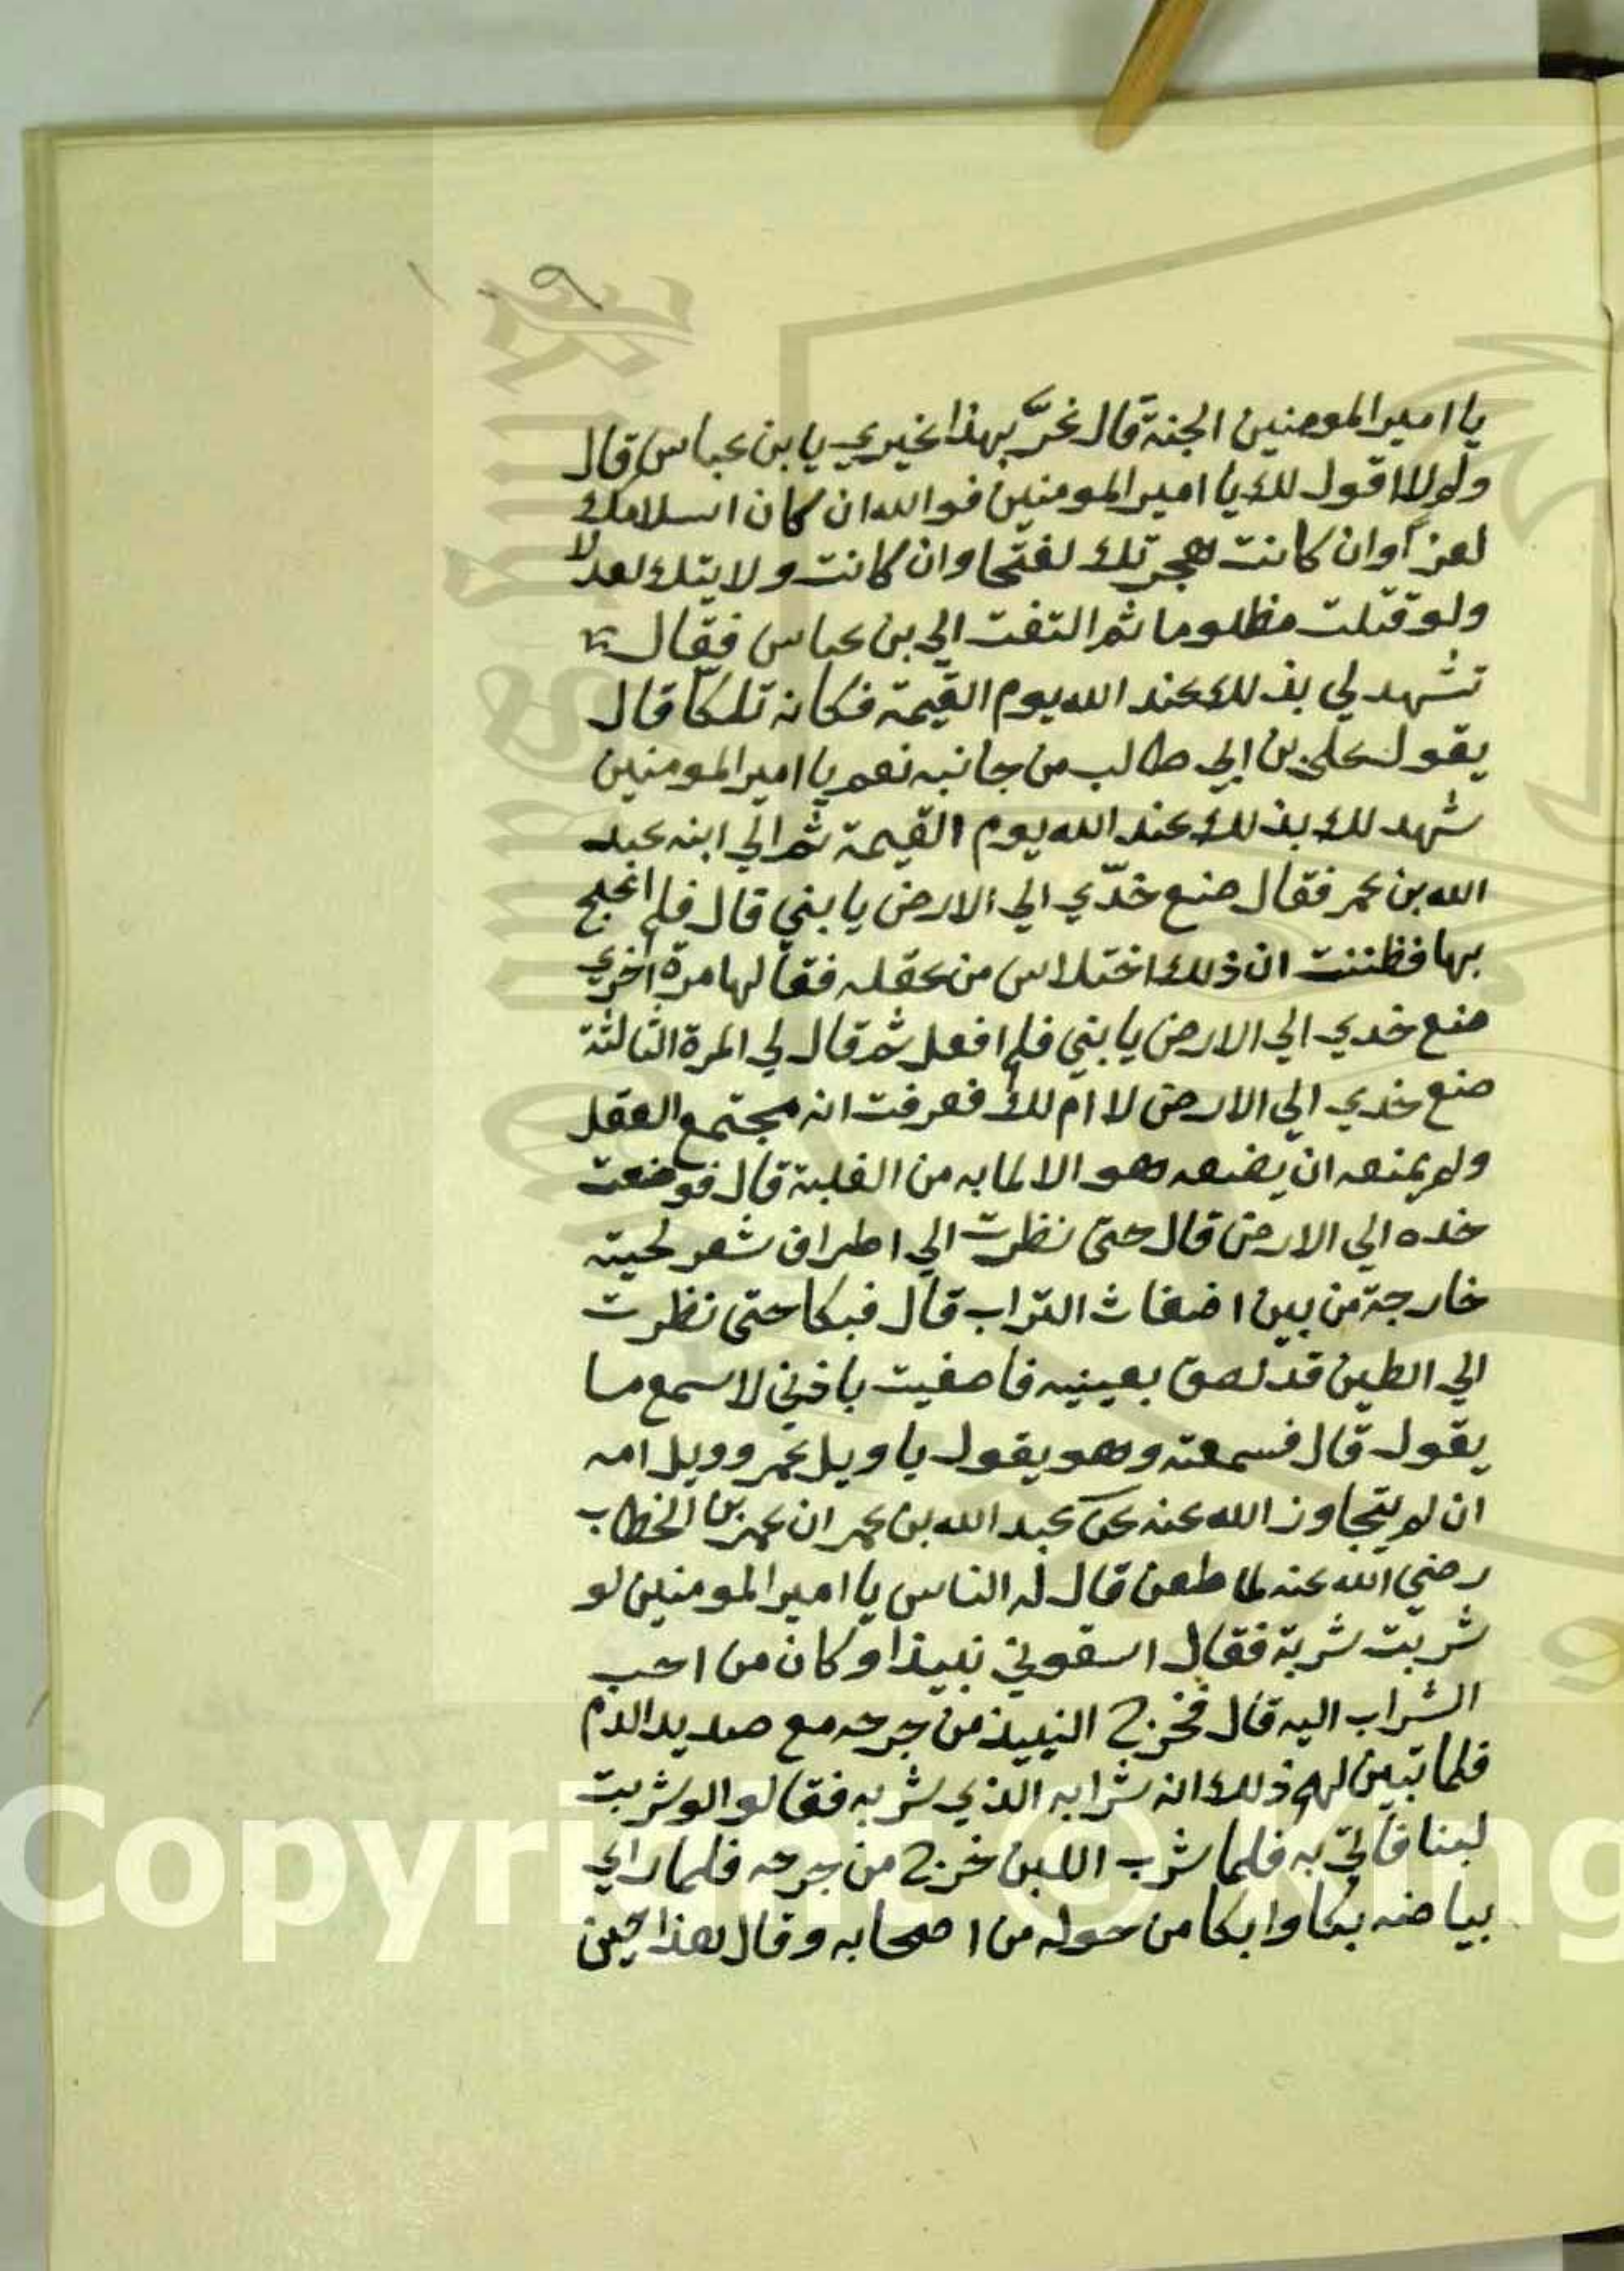 يا امير المومنين الجنة قال غرّ بهذا غيري يا بن عباس قال
ولم لا اقول لك يا امير المومنين فوالله ان كان اسلامك
لعزا وان كانت هجرتك لفتحا وان كانت ولايتك لعدلا
ولو قتلت مظلوما ثم التفت الي بن عباس فقال
تشهد لي بذلك عند الله يوم القيمة فكانه تلكا قال
يقول علي بن ابي طالب من جانبه نعم يا امير المومنين
شهد لك بذلك عند الله يوم القيمة ثم الي ابنه عبد
الله بن عمر فقال ضع خدّي الي الارض يا بني قال فلم
بها فظننت ان ذلك اختلاس من عقله فقالها مرة اخري
ضع خدي الي الارض يا بني فلم افعل ثم قال لي المرة الثالثة
ضع خدي الي الارض لا ام لك فعرفت انه مجتمع العقل
ولم يمنعه ان يضعه هو الا لما به من الغلبة قال فوضعت
خده الي الارض قال حتى نظرت الي اطراف شعر لحيته
خارجة من بين اضغاث التراب قال فبكا حتى نظرت
الي الطين قد لصق بعينيه فاصغيت باذني لاسمع ما
يقول قال فسمعته وهو يقول يا ويل عمر وويل امه
ان لم يتجاوز الله عنه عن عبد الله بن عمر ان عمر بن الخطاب
رضي الله عنه لما طعن قال له الناس يا امير المومنين لو
شربت شربة فقال اسقوني نبيذا وكان من احب
الشراب اليه قال فخرج النبيذ من جرحه مع صديد الدم
فلما تبين لهم ذلك انه شرابه الذي شربه فقالوا لو شربت
لبنا فاتي به فلما شرب اللبن خرج من جرحه فلما راي
بياضه بكا وابكا من حوله من اصحابه وقال هذا حين
Copyright © King